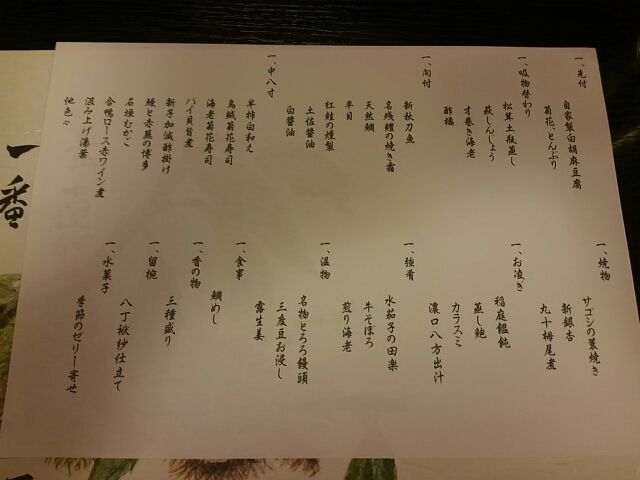 一、先付
自家製白胡麻豆腐
菊花、とんぶり
一、吸物替わり
松茸土瓶蒸し
萩しんじょう
才巻き海老
酢橘
一、向付
新秋刀魚
名残鱧の焼き霜
天然鯛
平目
紅鮭の燻製
土佐醤油
白醤油
一、中八寸
早柿白和え
烏賊菊花寿司
海老菊花寿司
バイ貝旨煮
新子加減酢掛け
鰻と赤茄の博多
石垣むかご
合鴨ロース赤ワイン煮
汲み上げ湯葉
他色々
一、焼物
サゴシの蓑焼き
新銀杏
丸十栂尾煮
一、お凌ぎ
稲庭饂飩
蒸し鮑
カラスミ
濃口八方出汁
一、強肴
水茄子の田楽
牛そぼろ
煎り海老
一、温物
名物とろろ饅頭
三度豆お浸し
露生姜
一、食事
鯛めし
一、香の物
三種盛り
一、留椀
八丁袱紗仕立て
一、水菓子
季節のゼリー寄せ
一番